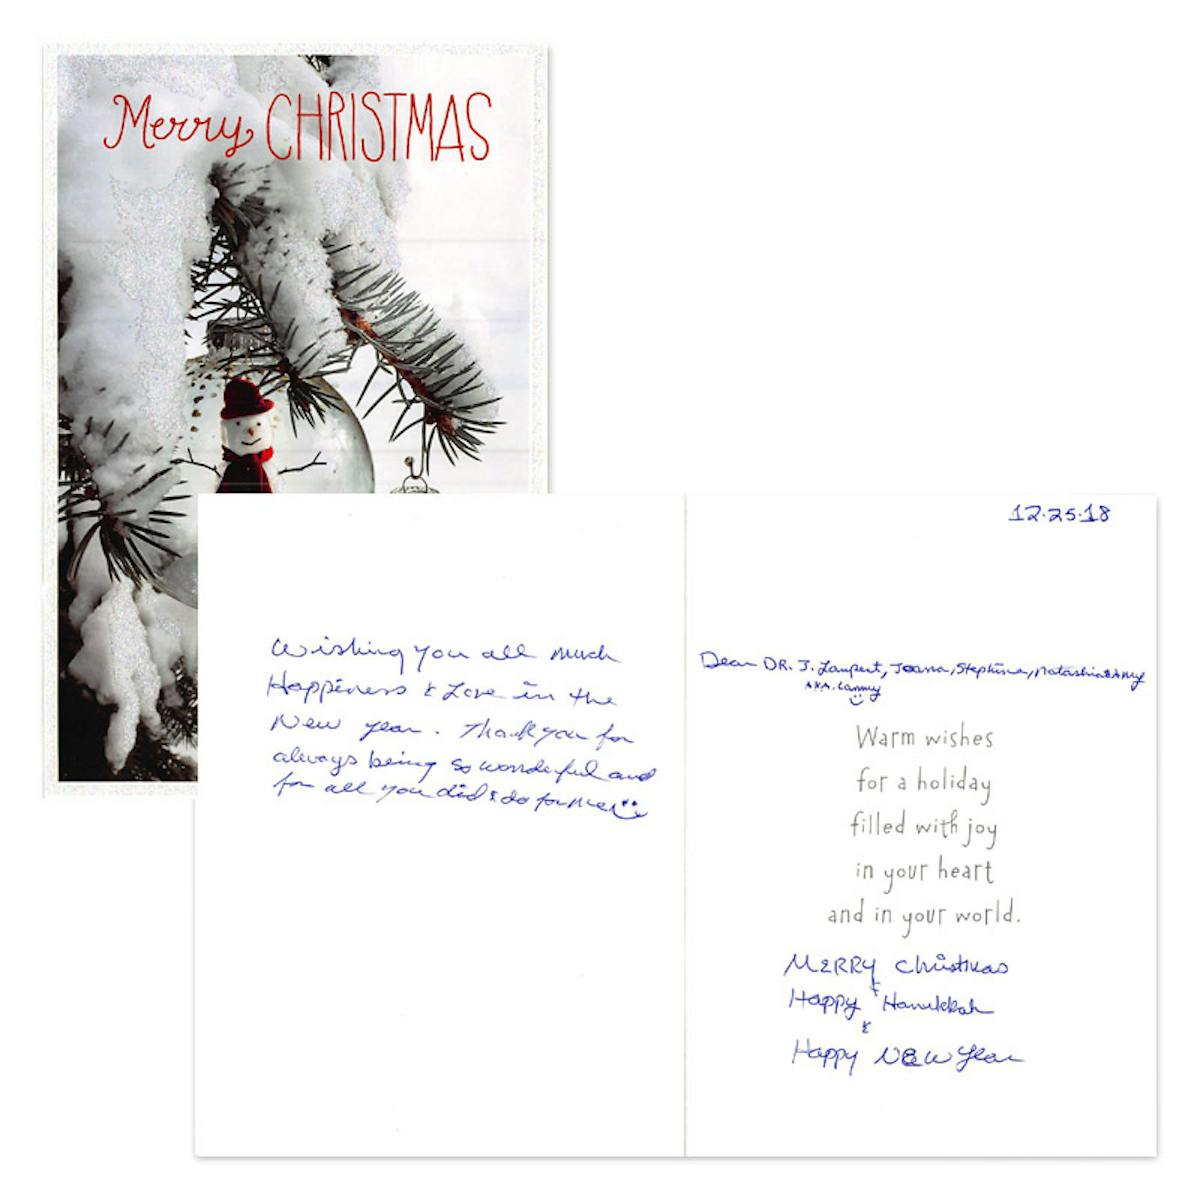 Merry CHRISTMAS
12.25.18
Wishing you all much
Happiness & Love in the
New year. Thank you for
always being so wonderful and
for all you did & do for me
Dear DR. J. Lampert, Joanna, Stephine, Natashia & Amy
AKA.
Warm wishes
for a holiday
filled with joy
in your heart
and in your world.
MERRY Christmas
&
Happy Hanukkah
&
Happy NEW Year